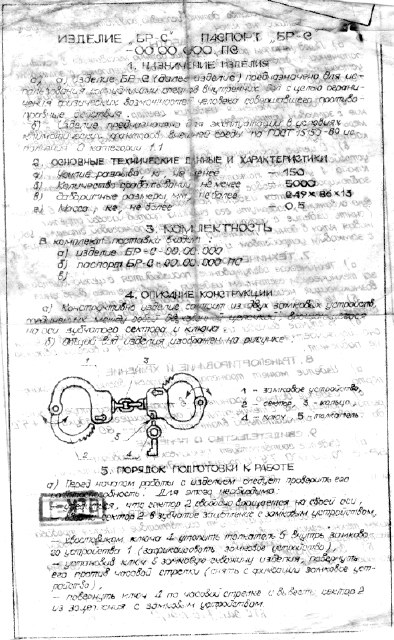 ИЗДЕЛИЕ „БР-С“ ПАСПОРТ БР-С
-00.00.000 ПС
1. НАЗНАЧЕНИЕ ИЗДЕЛИЯ
а) Изделие БР-С (далее изделие) предназначено для ис-
пользования сотрудниками органов внутренних дел с целью ограни-
чения физических возможностей человека совершившего противо-
правные действия.
б) Изделие предназначено для эксплуатации в условиях
климатических факторов внешней среды по ГОСТ 15150-69
О категории 1.1
2. ОСНОВНЫЕ ТЕХНИЧЕСКИЕ ДАННЫЕ И ХАРАКТЕРИСТИКИ
а) Усилие развива, кг не менее – 150
б) Количество срабатываний не менее – 5000
в) Габаритные размеры мм, не более – 249 × 86 × 15
г) Масса, кг, не более – 0,5
3. КОМПЛЕКТНОСТЬ
В комплект поставки входит:
а) изделие БР-С-00.00.000
б) паспорт БР-С-00.00.000 ПС
в)
4. ОПИСАНИЕ КОНСТРУКЦИИ
а) Конструктивно изделие состоит из двух замковых устройств,
между собой
на оси зубчатого сектора и ключа
б) Общий вид изделия изображен на рисунке
1 3
1 – замковое устройство,
2 – сектор, 3 – кольцо,
4 – ключ, 5 – толкатель
2 5 4
5. ПОРЯДОК ПОДГОТОВКИ К РАБОТЕ
а) Перед началом работы с изделием следует проверить его
Для этого необходимо:
что сектор 2 свободно вращается на своей оси,
сектора 2 в зубчатое зацепление с замковым устройством,
– хвостовиком ключа 4 утопить толкатель 5 внутрь замково-
го устройства 1 (зафиксировать замковое устройство),
– установив ключ в замковую скважину изделия, повернуть
его против часовой стрелки (снять с фиксации замковое уст-
ройство),
– повернуть ключ 4 по часовой стрелке и вывести сектор 2
из зацепления с замковым устройством